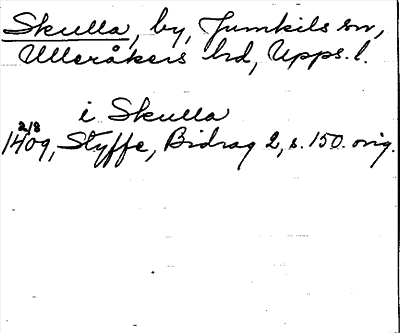 Skulla, by, Jumkils sn,
Ulleråkers hd, Upps. l.
i Skulla
2/8
1409, Styffe, Bidrag 2, s. 150. orig.